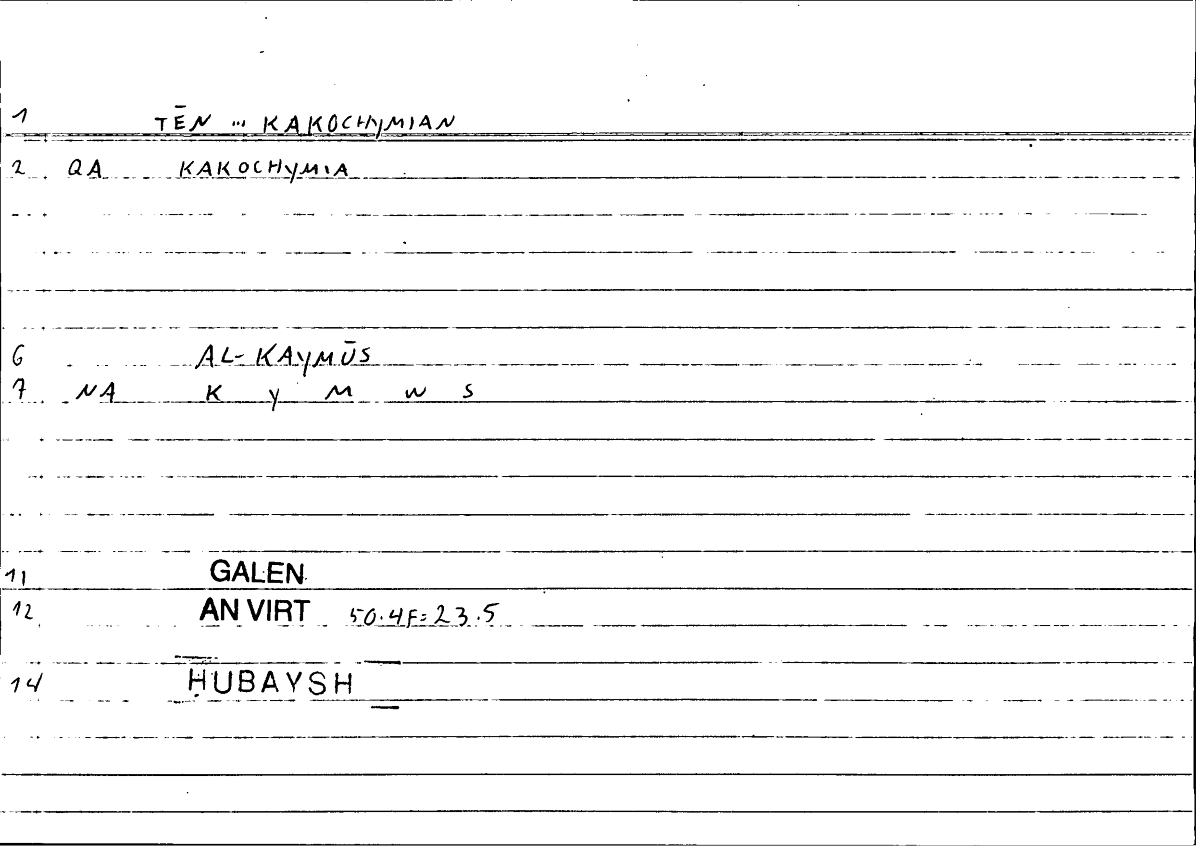 1 TĒN ... KAKOCHYMIAN
2 QA KAKOCHYMIA
6 AL-KAYMŪS
7 NA K Y M W S
11 GALEN
12 AN VIRT 50.4F=23.5
14 ḤUBAYSH